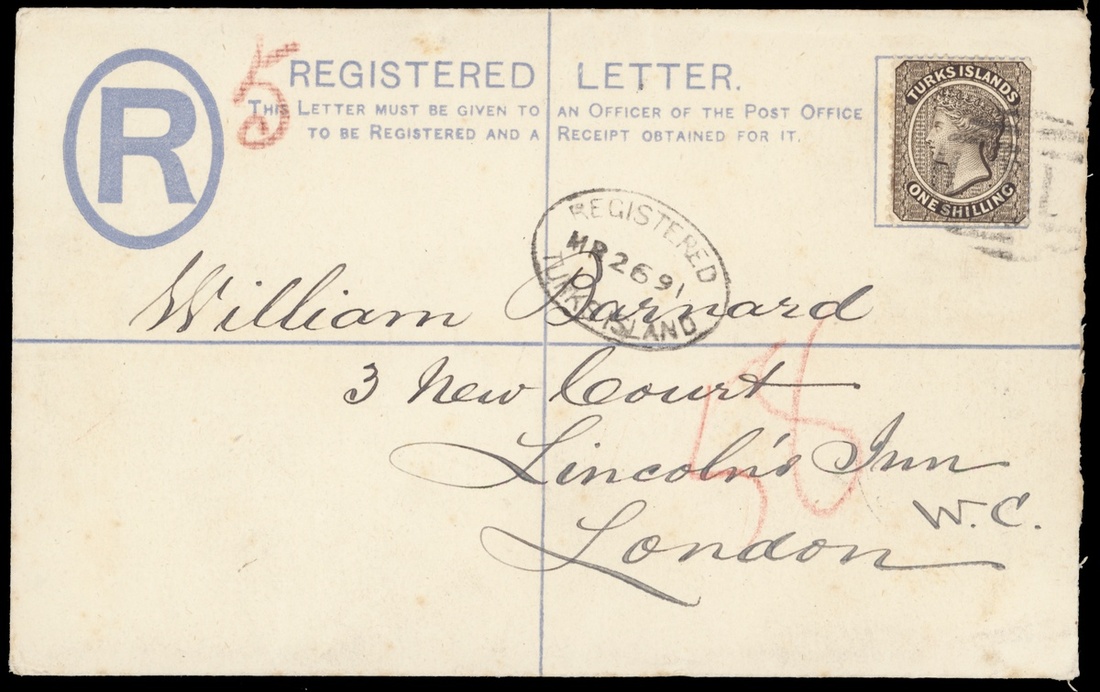 R
5
REGISTERED LETTER.
THIS LETTER MUST BE GIVEN TO AN OFFICER OF THE POST OFFICE
TO BE REGISTERED AND A RECEIPT OBTAINED FOR IT.
TURKS ISLANDS
ONE SHILLING
REGISTERED
MR 26 91
TURKS ISLAND
William Barnard
3 New Court
Lincoln's Inn
W.C.
London